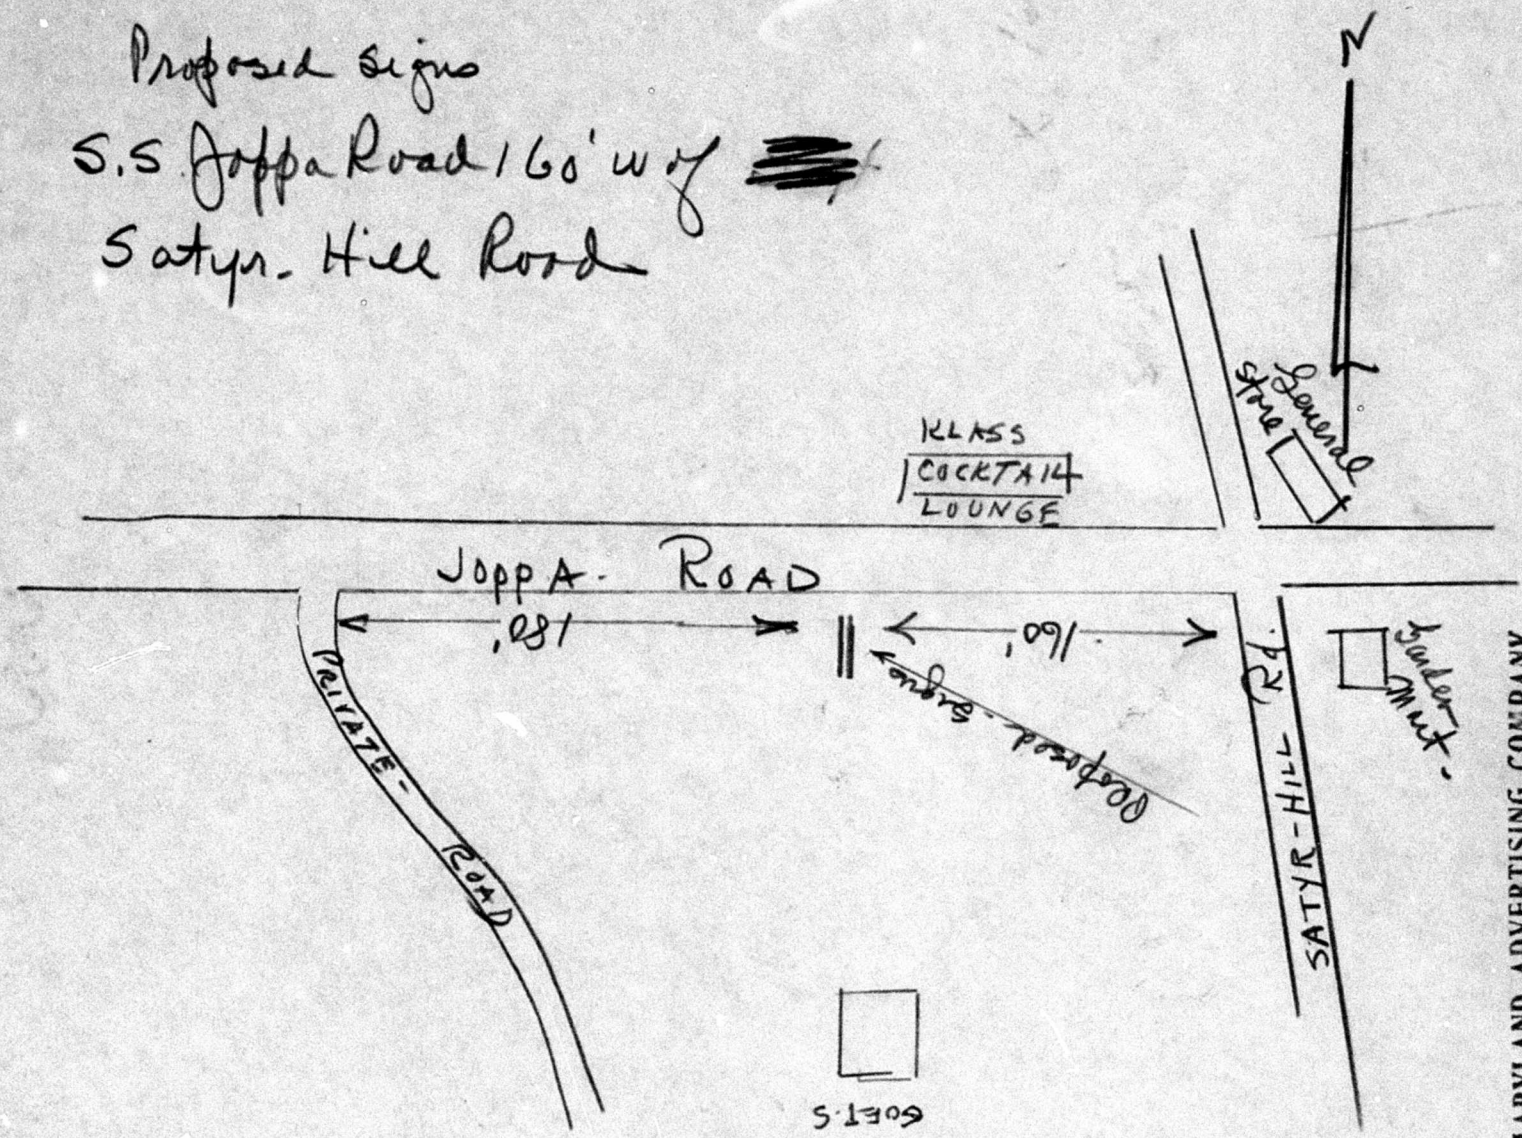 Proposed signs
S.S. Joppa Road 160' W of
Satyr-Hill Road
N
General
Store
KLASS
COCKTAIL
LOUNGE
JOPPA. ROAD
180'
160'
Proposed-signs
PRIVATE-ROAD
SATYR-HILL Rd.
Garden
Mart.
MARYLAND ADVERTISING COMPANY